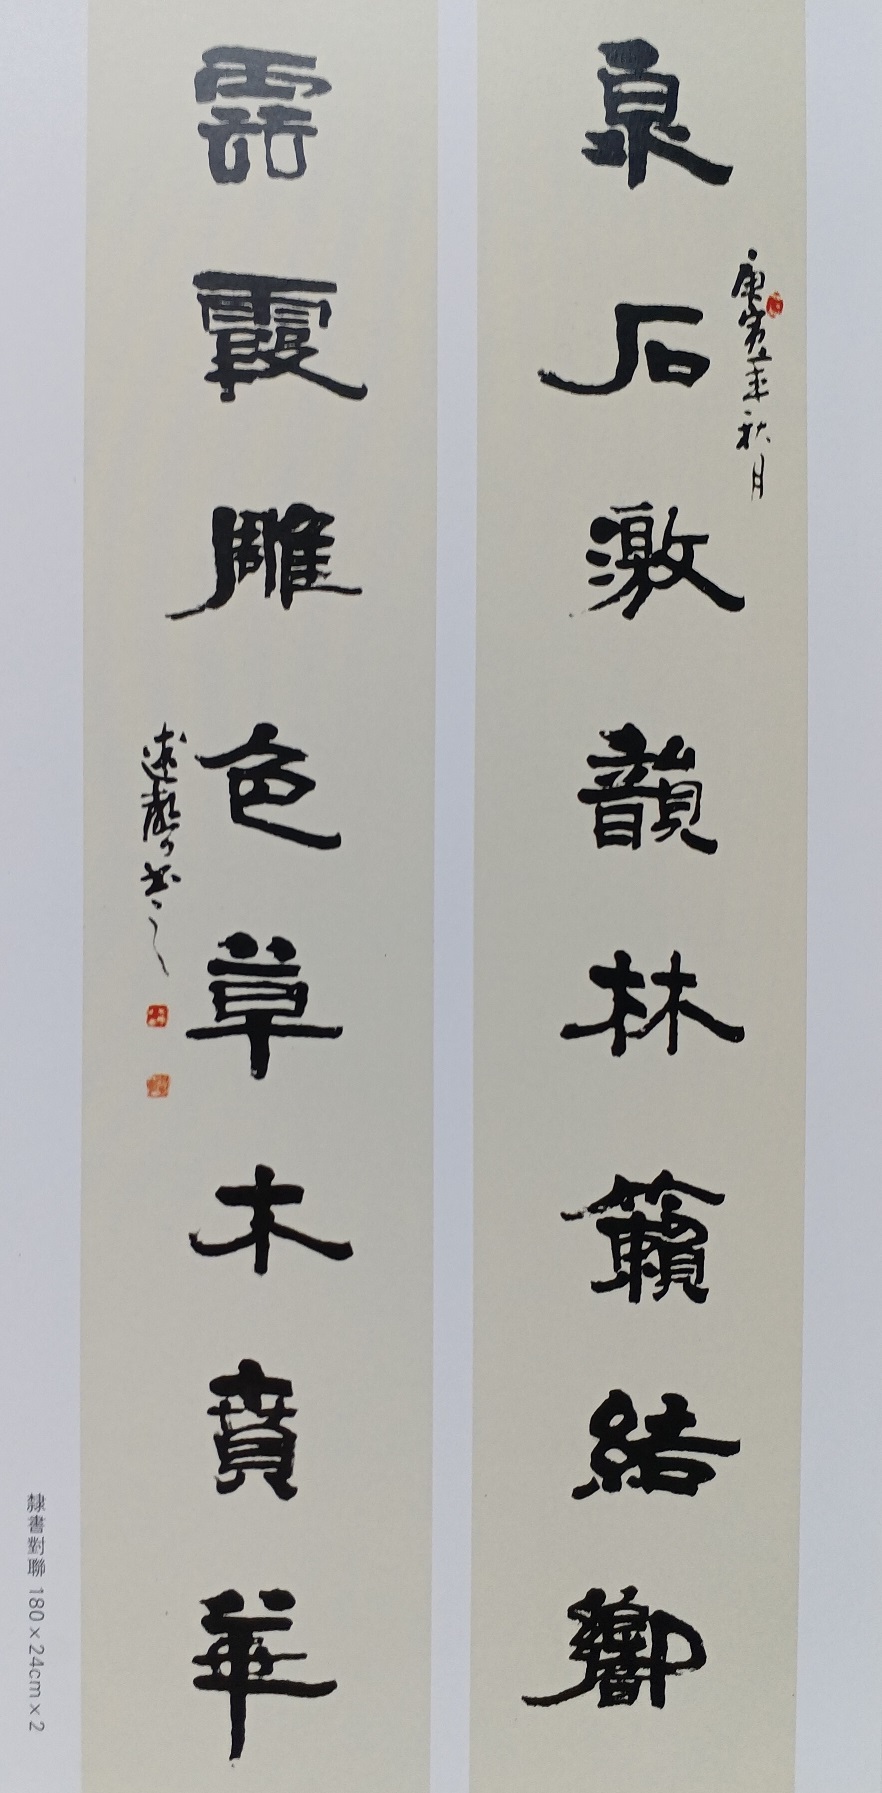 泉石激韻林籟結響
庚寅年秋月
雲霞雕色草木賁華
書之
隸書對聯 180×24cm×2